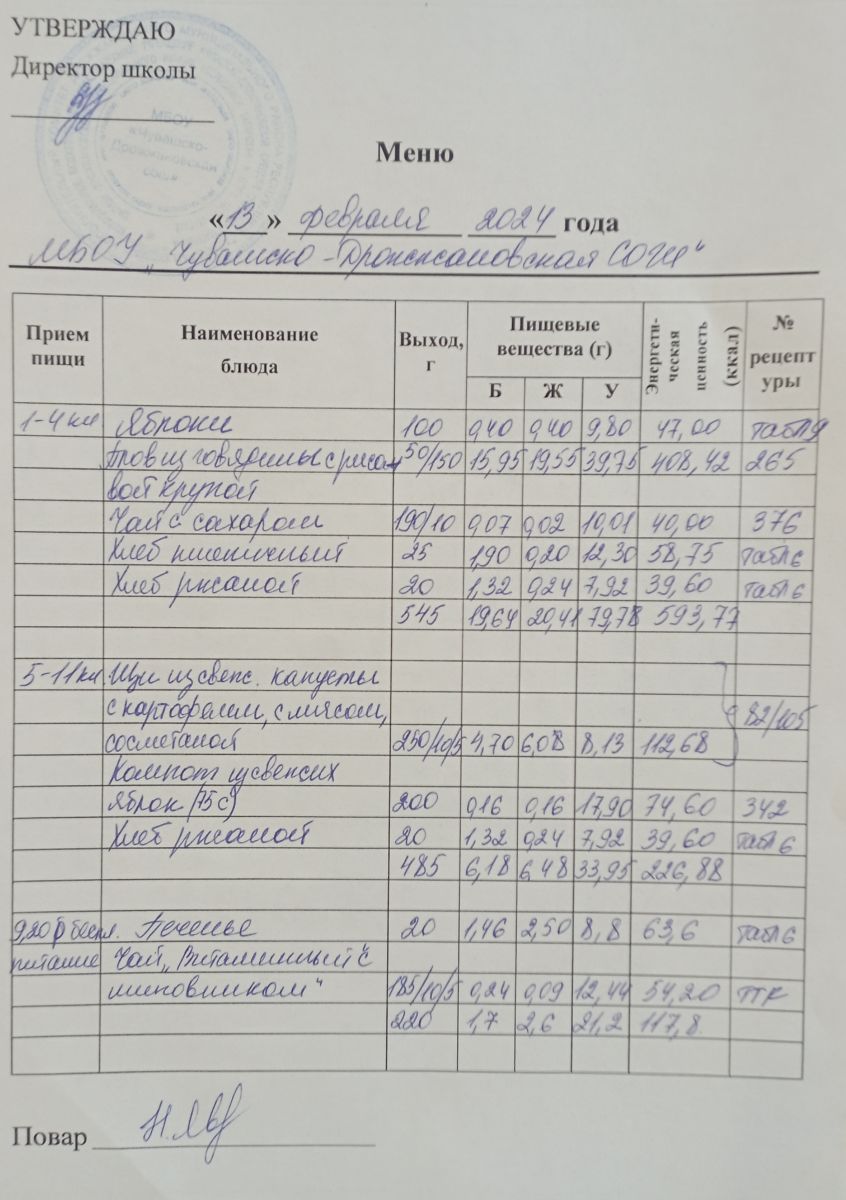 УТВЕРЖДАЮ
Директор школы
МБОУ
«Чувашско-
Дрожжановская
СОШ»
Меню
«13» февраля 2024 года
МБОУ „Чувашско-Дрожжановская СОШ"
Прием пищи Наименование блюда Выход, г Пищевые вещества (г) Б Ж У Энергети-ческая ценность (ккал) № рецепт уры
1-4 кл Яблоки 100 0,40 0,40 9,80 47,00 табл 9
из говядины с рисо- 50/150 15,95 19,55 39,75 408,42 265
вой крупой
Чай с сахаром 190/10 0,07 0,02 10,01 40,00 376
Хлеб пшеничный 25 1,90 0,20 12,30 58,75 табл 6
Хлеб ржаной 20 1,32 0,24 7,92 39,60 табл 6
545 19,64 20,41 79,78 593,77
5-11 кл Щи из свеж. капусты
с картофелем, с мясом, 82/105
со сметаной 250/10/5 4,70 6,08 8,13 112,68
Компот из свежих
яблок (75 С) 200 0,16 0,16 17,90 74,60 342
Хлеб ржаной 20 1,32 0,24 7,92 39,60 табл 6
485 6,18 6,48 33,95 226,88
9,20 р беспл. Печенье 20 1,46 2,50 8,8 63,6 табл 6
питание Чай „Витаминный с
шиповником" 185/10/5 0,24 0,09 12,44 54,20 ТТК
220 1,7 2,6 21,2 117,8
Повар